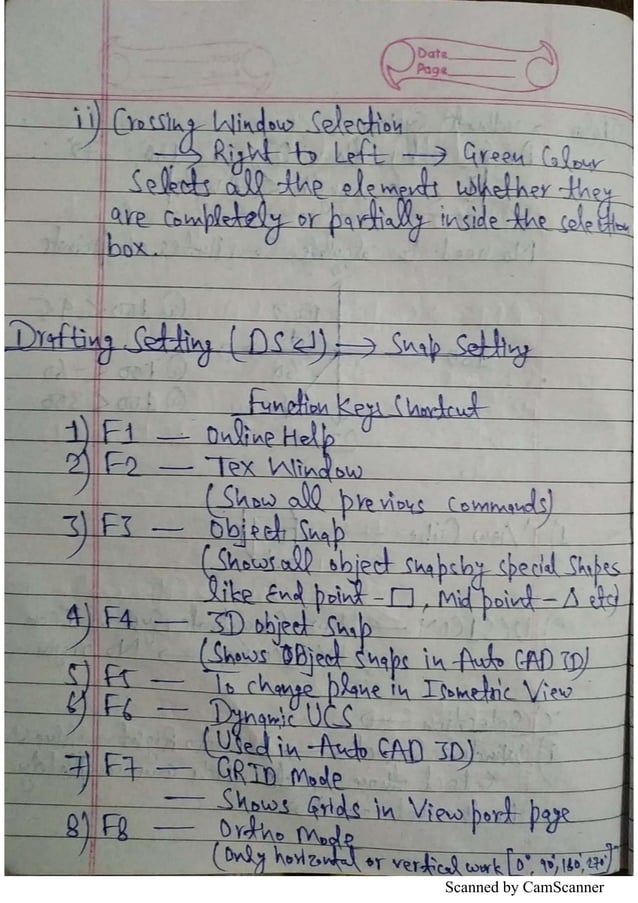 Date
Page
ii) Crossing Window Selection
→ Right to Left → Green Colour
Selects all the elements whether they
are completely or partially inside the selection
box.
Drafting Setting (DS↵) → Snap Setting
Function Keys Shortcut
1) F1 — Online Help
2) F2 — Tex Window
(Show all previous commands)
3) F3 — Object Snap
(Shows all object snaps by special shapes
like End point - □, Mid point - △ etc)
4) F4 — 3D object Snap
(Shows Object snaps in Auto CAD 3D)
5) F5 — To change plane in Isometric View
6) F6 — Dynamic UCS
(Used in Auto CAD 3D)
7) F7 — GRID Mode
— Shows Grids in View port page
8) F8 — Ortho Mode
(Only horizontal or vertical work [0°, 90°, 180°, 270°]
Scanned by CamScanner